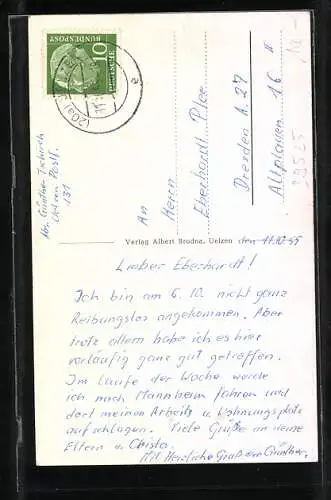 10
DEUTSCHE
BUNDESPOST
(20a)
a
Abs. Günther Tschirch
Uelzen Postl.
131
An
Herrn
Eberhardt Ploe
Dresden A. 27
Altplauen 16 II
Verlag Albert Brodne, Uelzen
den 11.10.55
Lieber Eberhardt!
Ich bin am 6.10. nicht ganz
Reibungslos angekommen. Aber
trotz allem habe ich es hier
vorläufig ganz gut getroffen.
Im Laufe der Woche werde
ich nach Mannheim fahren und
dort meinen Arbeits u. Wohnungsplatz
aufschlagen. Viele Grüße an deine
Eltern u. Christa.
Mit Herzliche Gruß dein Günther.